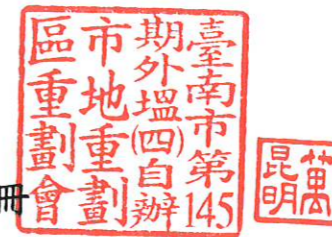 臺南市第145
期外塭(四)自辦
市地重劃
區重劃會
冊